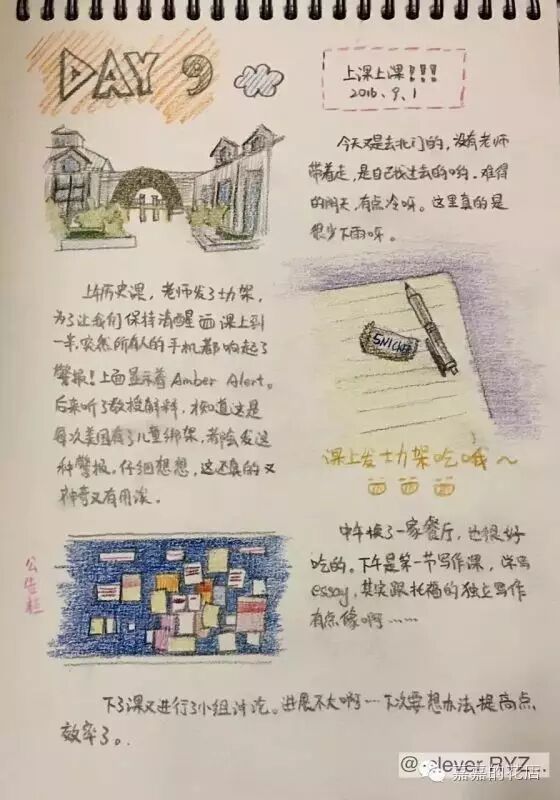 DAY 9
上课上课!!!
2016.9.1
今天又是去北门的，没有老师
带着走，是自己找过去的哟。难得
的阴天，有点冷呀。这里真的是
很少下雨呀。
上午历史课，老师发了士力架，
为了让我们保持清醒 课上到
一半，突然所有人的手机都响起了
警报！上面显示着 Amber Alert。
后来听了教授解释，才知道这是
每次美国有了儿童绑架，都会发这
种警报。仔细想想，这还真的又
神奇又有用诶。
SNICKER
课上发士力架吃哦～
公告栏
中午换了一家餐厅，也很好
吃的。下午是第一节写作课，学写
essay，其实跟托福的独立写作
有点像啊……
下了课又进行了小组讨论。进展不大啊…下次要想办法提高点
效率了。
@clever_RYZ...
嘉嘉的花店